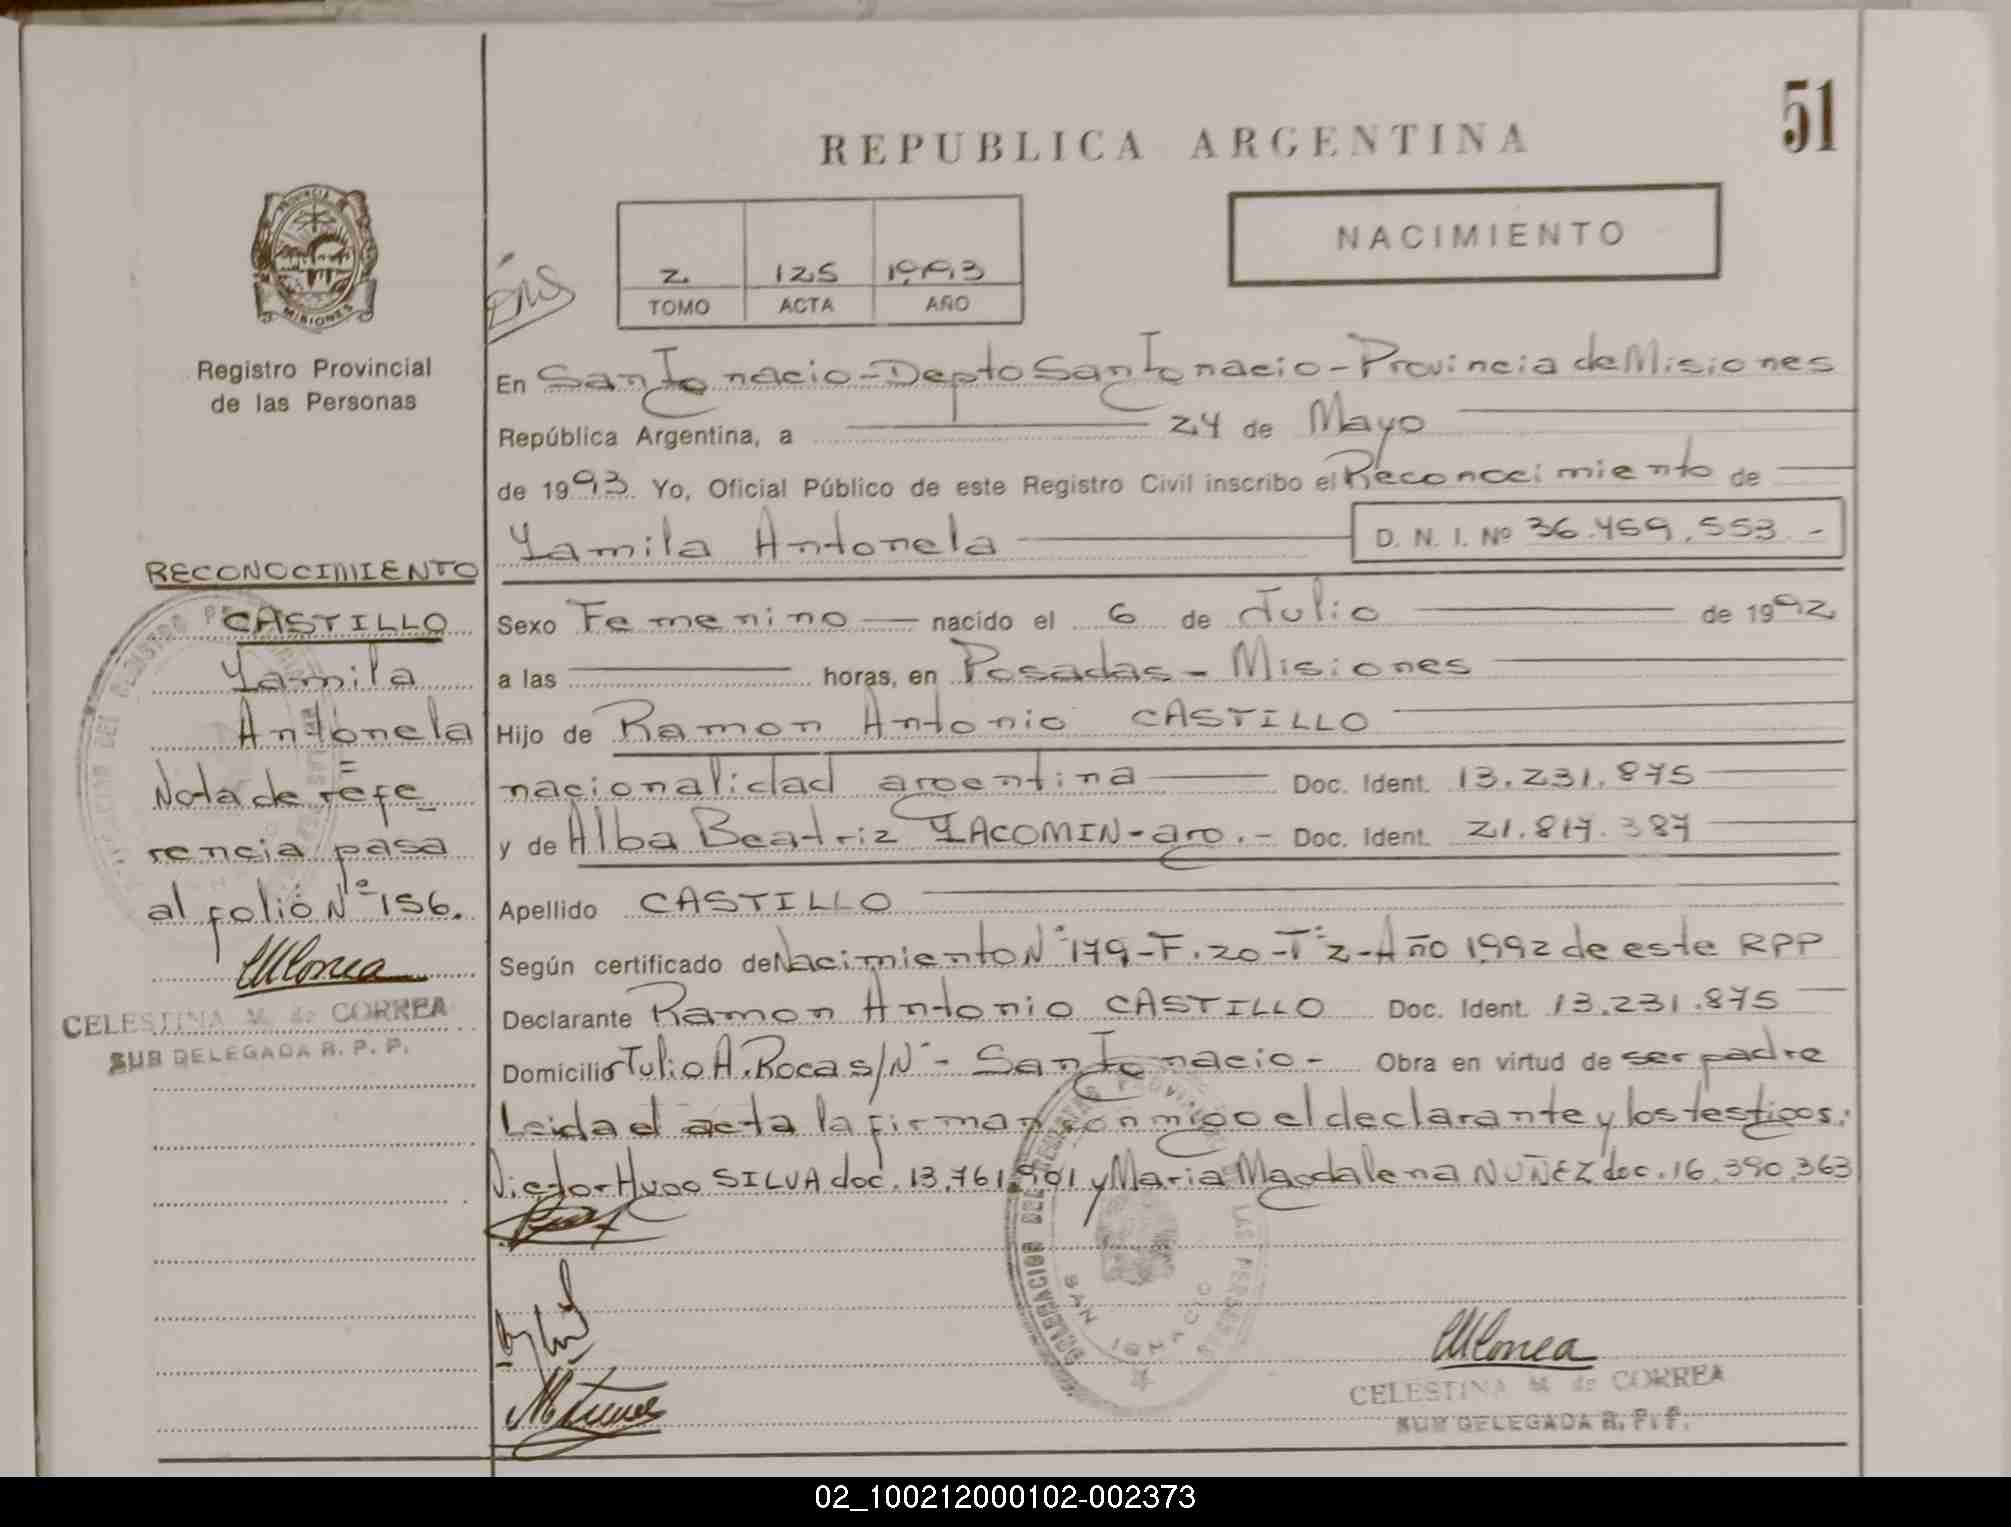 51
REPUBLICA ARGENTINA
NACIMIENTO
PROVINCIA DE
MISIONES
Registro Provincial
de las Personas
2 125 1993
TOMO ACTA AÑO
En San Ignacio - Depto San Ignacio - Provincia de Misiones
República Argentina, a 24 de Mayo
de 1993. Yo, Oficial Público de este Registro Civil inscribo el Reconocimiento de
Yamila Antonela D. N. I. Nº 36.459.553 -
RECONOCIMIENTO
CASTILLO
Yamila
Antonela
=
Nota de refe
rencia pasa
al folio Nº 156.
CELESTINA M. de CORREA
SUB DELEGADA R. P. P.
Sexo Femenino nacido el 6 de Julio de 1992
a las horas, en Posadas - Misiones
Hijo de Ramon Antonio CASTILLO
nacionalidad argentina Doc. Ident. 13.231.875
y de Alba Beatriz YACOMIN - arg. - Doc. Ident. 21.817.387
Apellido CASTILLO
Según certificado de Nacimiento Nº 179 - F. 20 - Tº 2 - Año 1992 de este RPP
Declarante Ramon Antonio CASTILLO Doc. Ident. 13.231.875
Domicilio Julio A. Roca s/Nº - San Ignacio - Obra en virtud de ser padre
Leida el acta la firman conmigo el declarante y los testigos:
Victor Hugo SILVA doc. 13.761.901 y Maria Magdalena NUÑEZ doc. 16.390.363
SAN IGNACIO
CELESTINA M. de CORREA
SUB DELEGADA R. P. P.
02_100212000102-002373